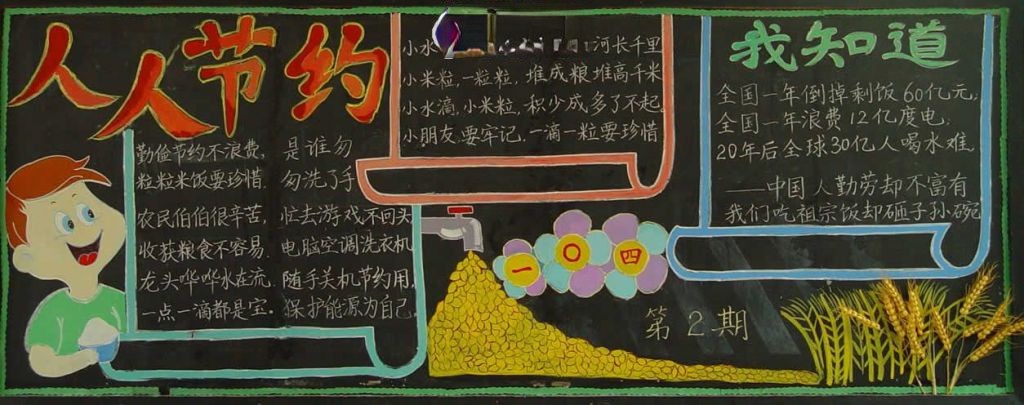 人人节约
勤俭节约不浪费,
粒粒米饭要珍惜.
农民伯伯很辛苦.
收获粮食不容易.
龙头哗哗水在流.
一点一滴都是宝.
是谁匆
匆洗了手
忙去游戏不回头
电脑空调洗衣机
随手关机节约用,
保护能源为自己.
小水 河长千里
小米粒,一粒粒,堆成粮堆高千米
小水滴,小米粒,积少成多了不起,
小朋友,要牢记.一滴一粒要珍惜
一〇四
第2期
我知道
全国一年倒掉剩饭60亿元,
全国一年浪费12亿度电,
20年后全球30亿人喝水难.
——中国人勤劳却不富有
我们吃祖宗饭却砸子孙碗